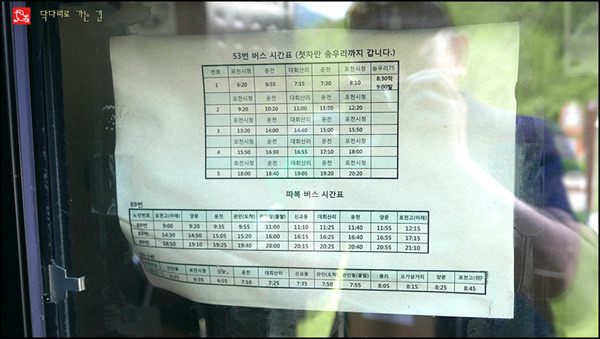 닥다리로 가는 길
53번 버스 시간표 (첫차만 송우리까지 갑니다.)
번호 포천시청 운천 대회산리 운천 포천시청 송우리75
1 6:20 6:55 7:15 7:30 8:10 8:30착 9:00발
포천시청 운천 대회산리 운천 포천시청
2 9:20 10:20 11:00 11:20 12:20
포천시청 운천 대회산리 운천 포천시청
3 13:20 14:00 14:40 15:00 15:50
포천시청 운천 대회산리 운천 포천시청
4 15:50 16:30 16:55 17:10 18:00
포천시청 운천 대회산리 운천 포천시청
5 18:00 18:40 19:05 19:20 20:20
따복 버스 시간표
89번
노선번호 포천고(아래) 양문 운천 관인(도착) 관인발(출발) 신교동 대회산리 운천 양문 포천고(아래)
89번 9:00 9:20 9:35 9:55 11:00 11:10 11:25 11:40 11:55 12:15
89번 14:30 14:50 15:05 15:20 16:00 16:15 16:25 16:40 16:55 17:15
89번 18:50 19:10 19:25 19:40 20:00 20:15 20:25 20:40 20:55 21:10
양문 운천 대회산리 신교동 관인(도착) 관인발(출발) 오가삼거리 양문 포천고(위)
6:35 6:55 7:10 7:25 7:35 7:50 7:55 8:05 8:15 8:25 8:45